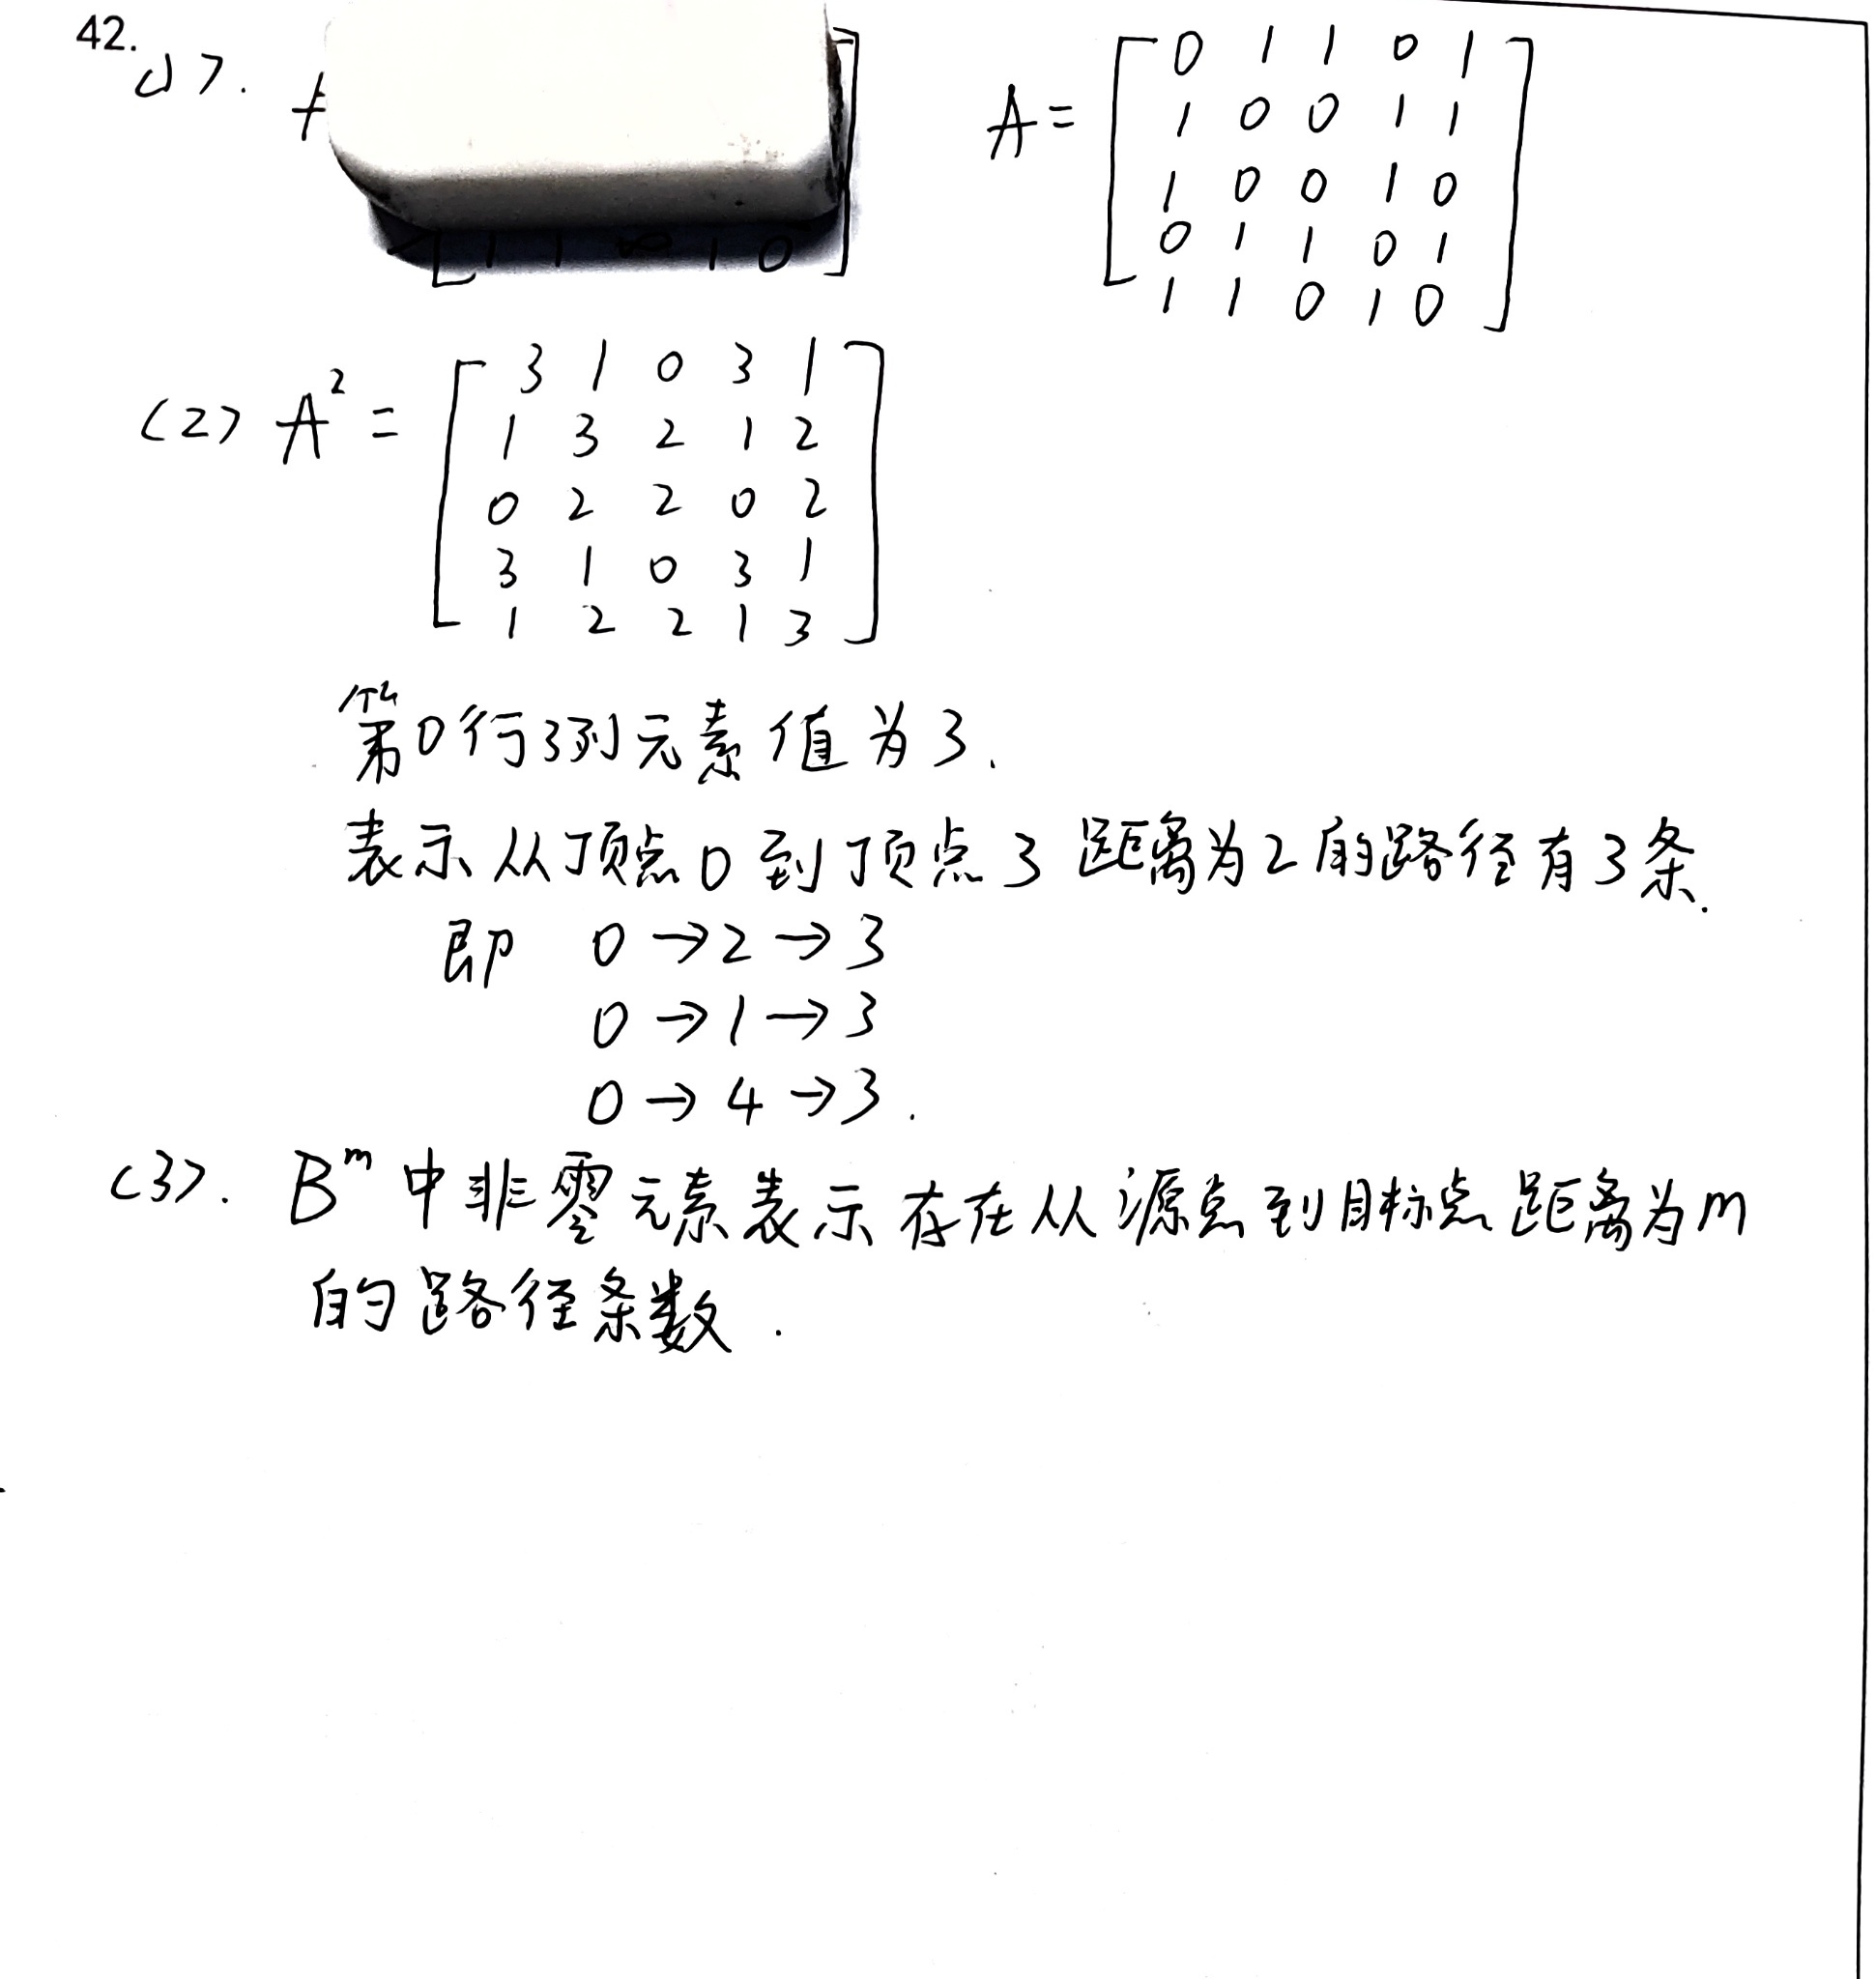 42.
(1). A
[1 1 ∞ 1 0]
A = [0 1 1 0 1
1 0 0 1 1
1 0 0 1 0
0 1 1 0 1
1 1 0 1 0]
(2) A² = [3 1 0 3 1
1 3 2 1 2
0 2 2 0 2
3 1 0 3 1
1 2 2 1 3]
第0行3列元素值为3.
表示从顶点0到顶点3距离为2的路径有3条.
即 0→2→3
0→1→3
0→4→3.
(3). Bᵐ中非零元素表示存在从源点到目标点距离为m
的路径条数.